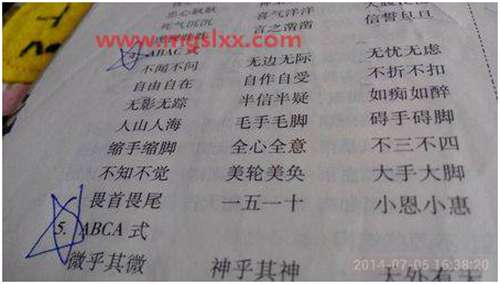 忠心耿耿
死气沉沉 喜气洋洋
言之凿凿 信誓旦旦
www.mgslxx.com
ABAC 式
不闻不问 无边无际 无忧无虑
自由自在 自作自受 不折不扣
无影无踪 半信半疑 如痴如醉
人山人海 毛手毛脚 碍手碍脚
缩手缩脚 全心全意 不三不四
不知不觉 美轮美奂 大手大脚
畏首畏尾 一五一十 小恩小惠
5. ABCA 式
微乎其微 神乎其神 天外有天
2014-07-05 16:38:20